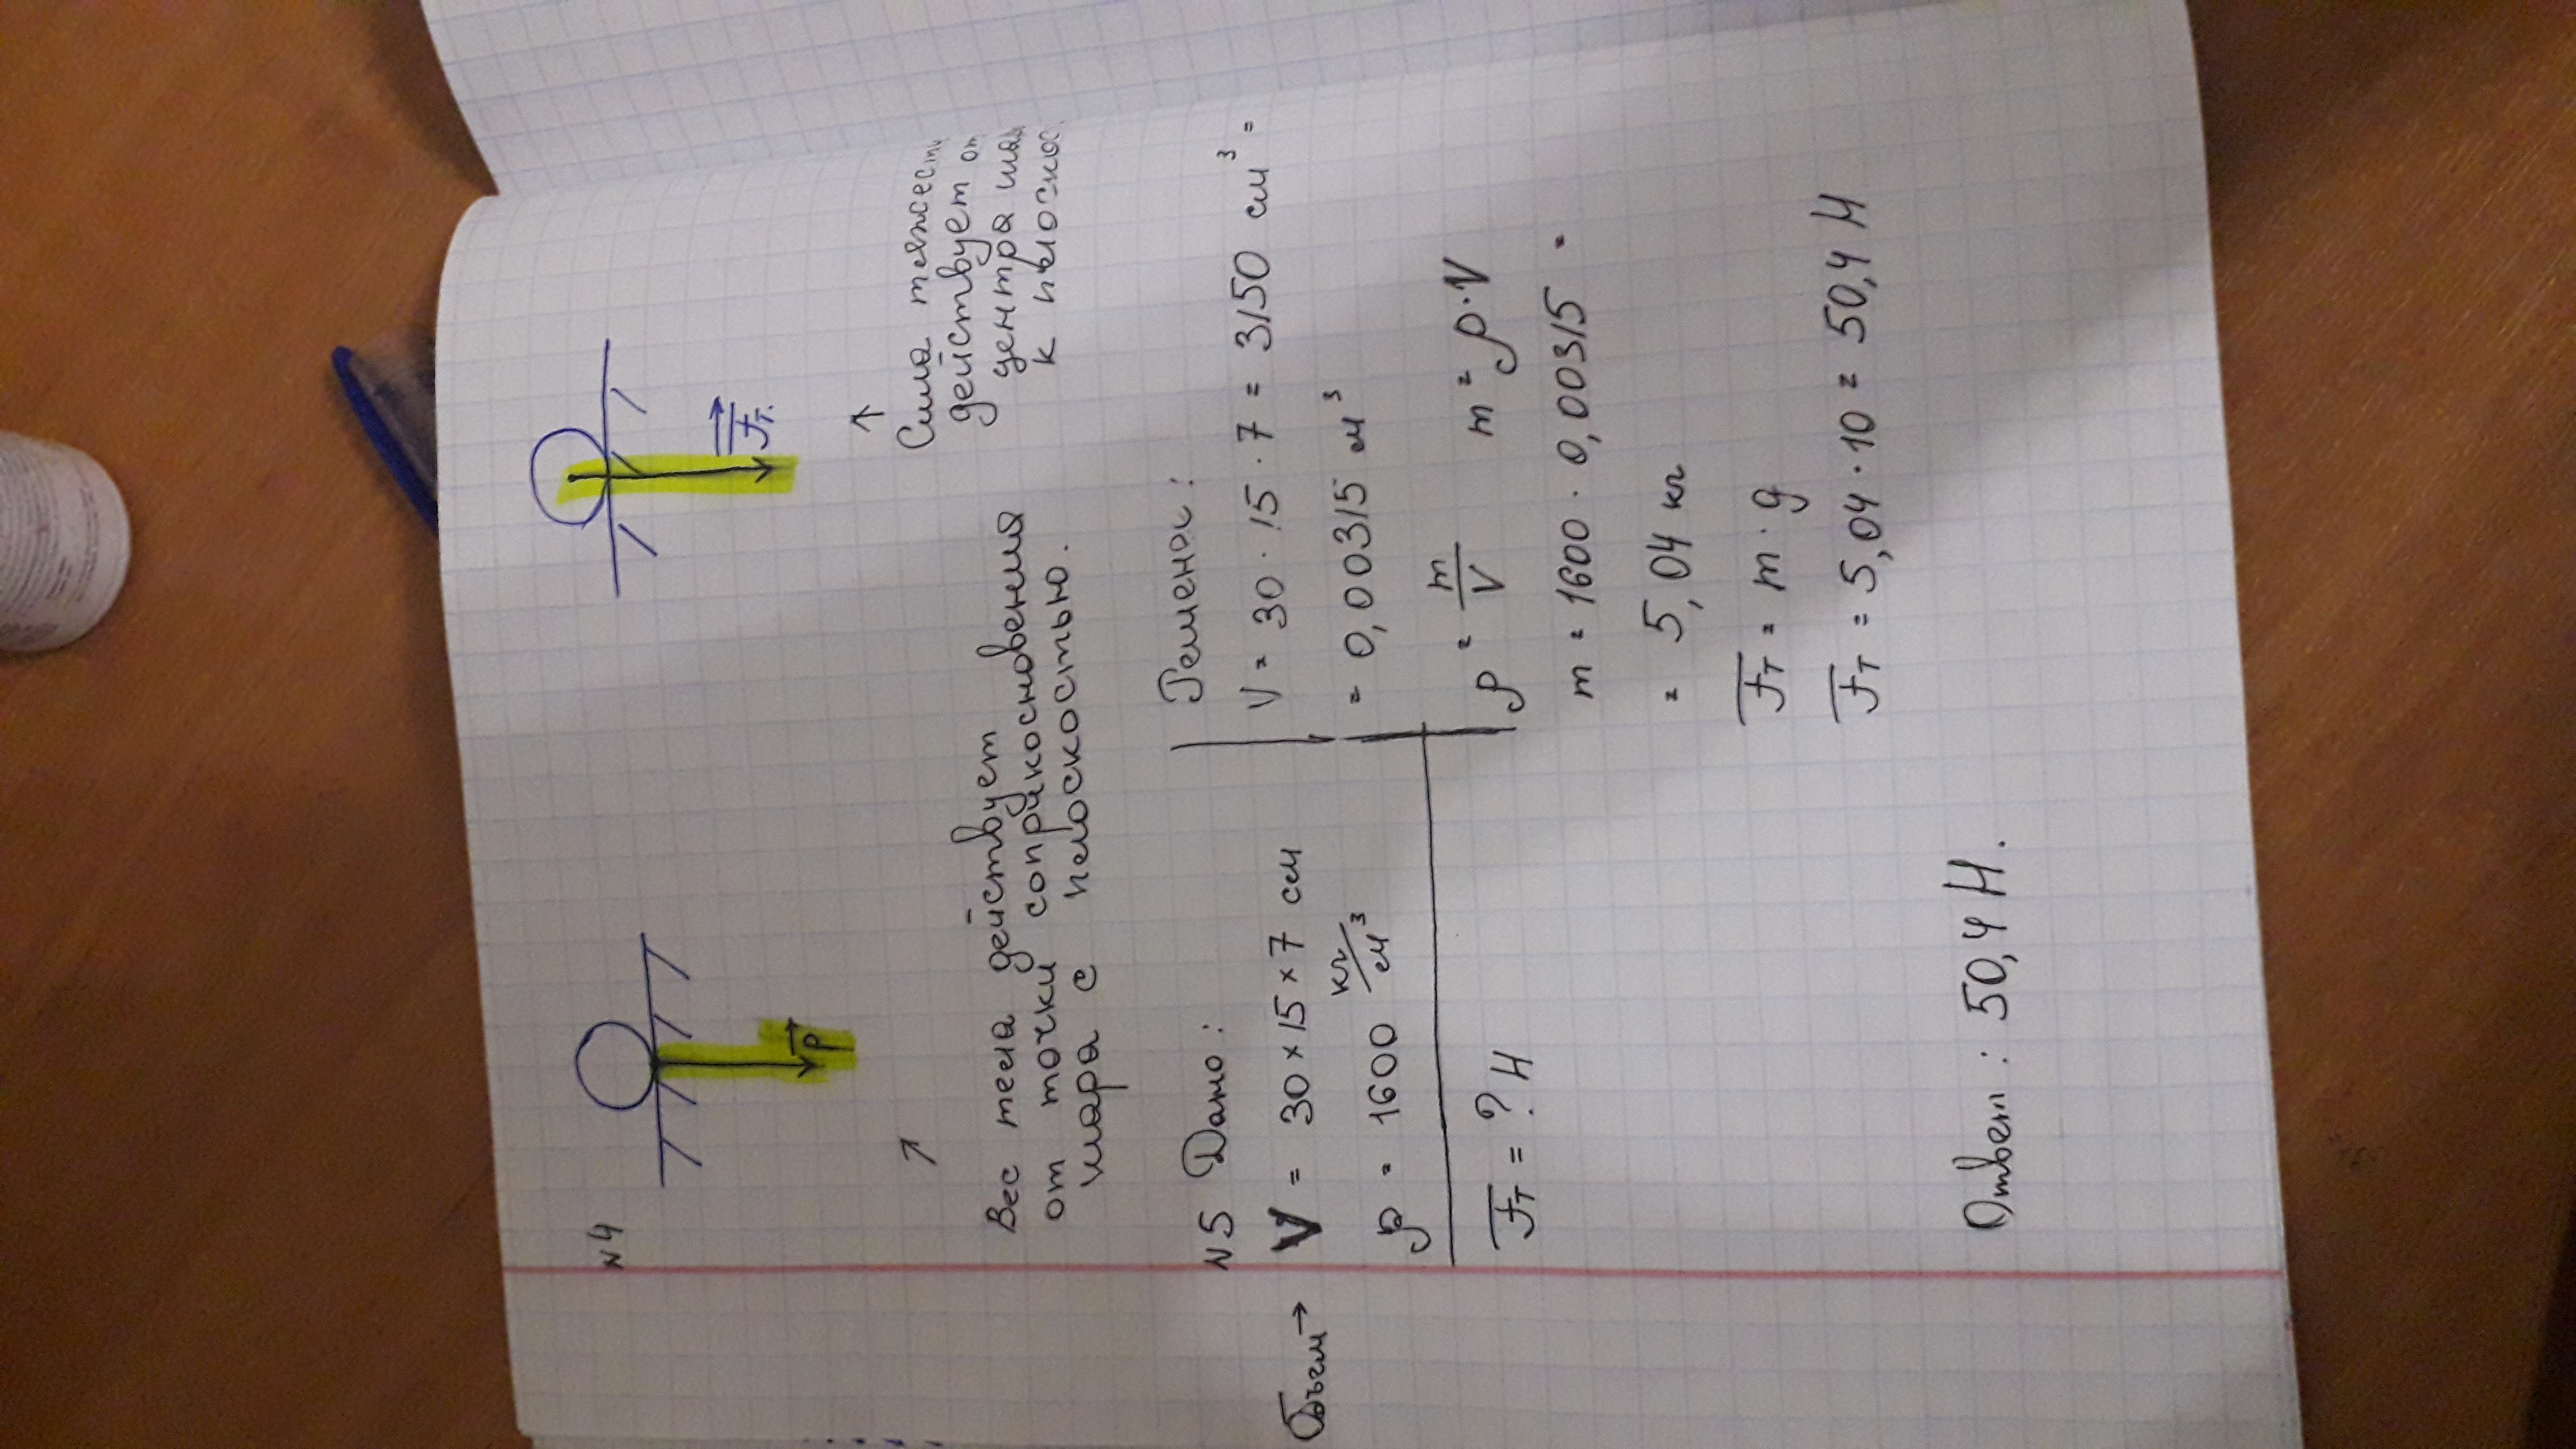 N4
P
Fт.
Вес тела действует
от точки соприкосновения
шара с плоскостью.
Сила тяжести
действует от
центра шара
к плоскос
N5 Дано:
Объем → V = 30 × 15 × 7 см
ρ = 1600 кг/м³
Fт = ? Н
Решение:
V = 30 · 15 · 7 = 3150 см³ =
= 0,00315 м³
ρ = m/V m = ρ·V
m = 1600 · 0,00315 =
= 5,04 кг
Fт = m · g
Fт = 5,04 · 10 = 50,4 Н
Ответ: 50,4 Н.